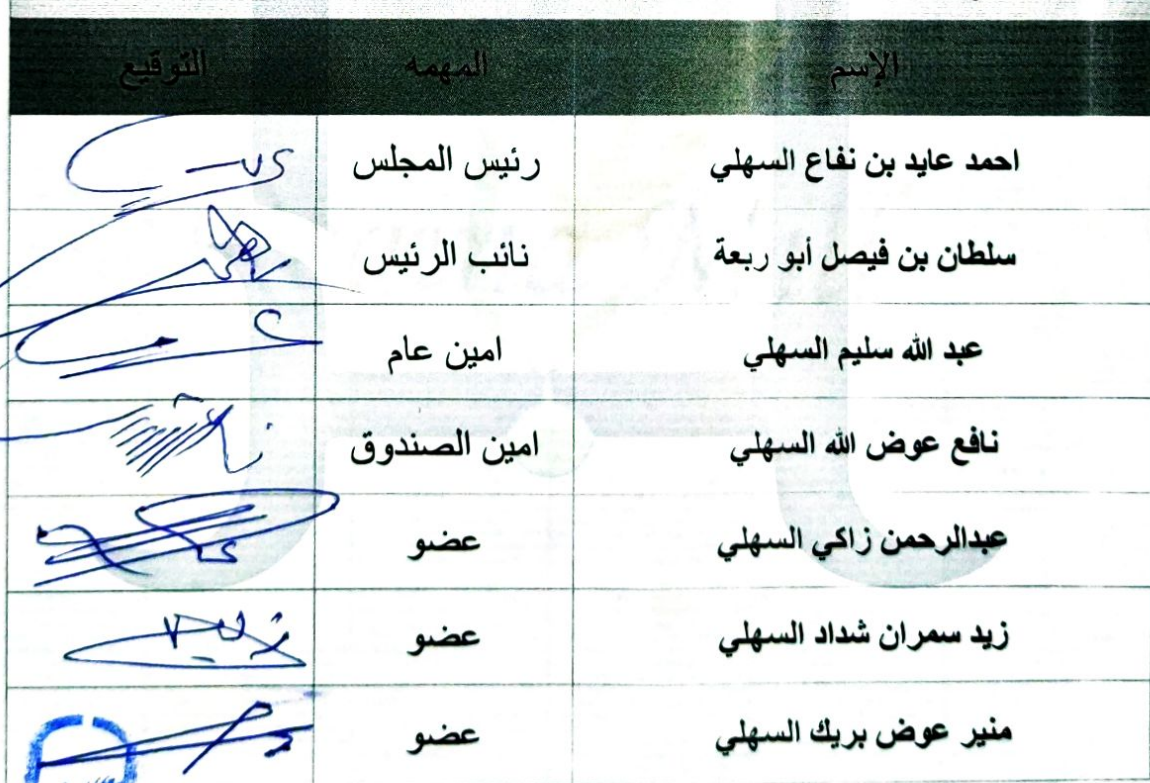 الإسم المهمه التوقيع
احمد عايد بن نفاع السهلي رئيس المجلس
سلطان بن فيصل أبو ربعة نائب الرئيس
عبد الله سليم السهلي امين عام
نافع عوض الله السهلي امين الصندوق
عبدالرحمن زاكي السهلي عضو
زيد سمران شداد السهلي عضو
منير عوض بريك السهلي عضو